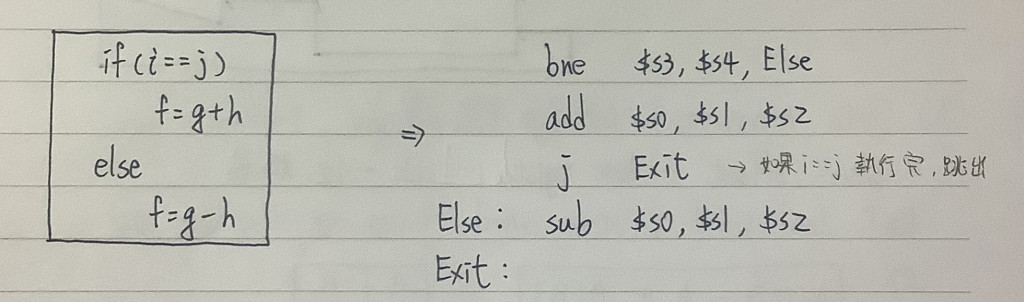 if(i==j)
f=g+h
else
f=g-h
⇒
bne $s3, $s4, Else
add $s0, $s1, $s2
j Exit → 如果i==j 執行完,跳出
Else: sub $s0, $s1, $s2
Exit: